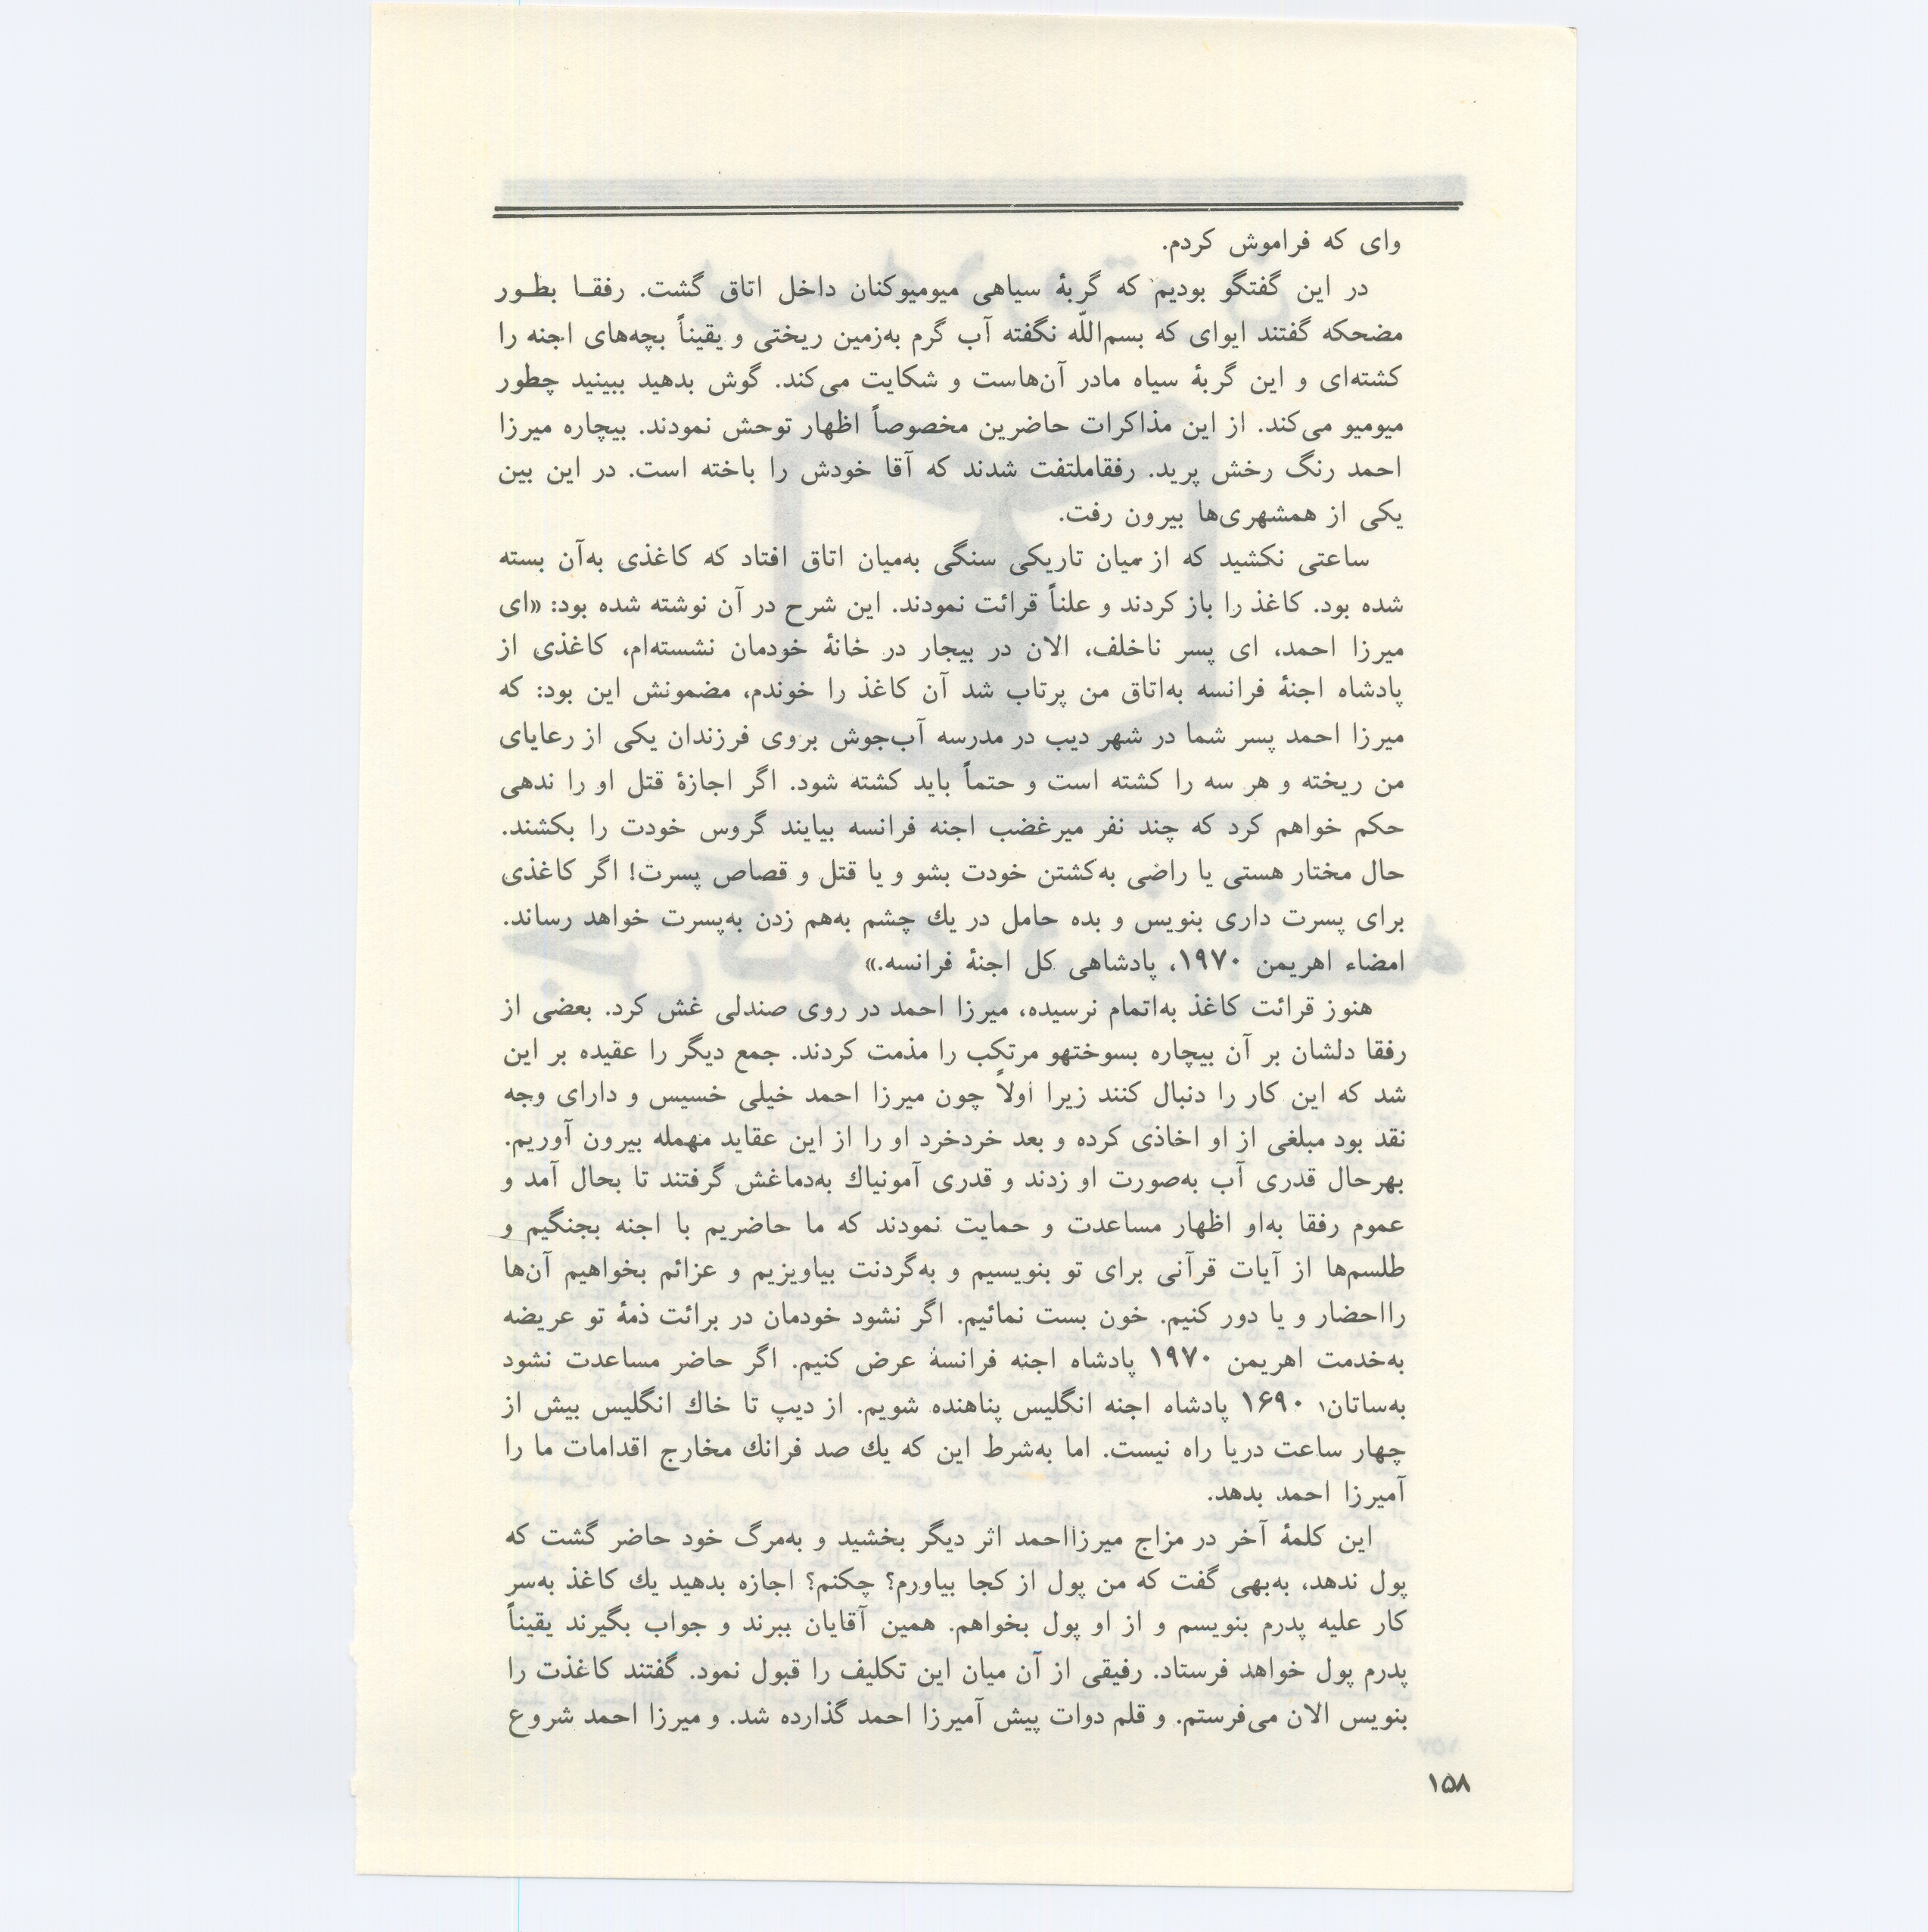 وای که فراموش کردم.
در این گفتگو بودیم که گربهٔ سیاهی میومیوکنان داخل اتاق گشت. رفقـا بطـور
مضحکه گفتند ایوای که بسم‌اللّه نگفته آب گرم به‌زمین ریختی و یقیناً بچه‌های اجنه را
کشته‌ای و این گربهٔ سیاه مادر آن‌هاست و شکایت می‌کند. گوش بدهید ببینید چطور
میومیو می‌کند. از این مذاکرات حاضرین مخصوصاً اظهار توحش نمودند. بیچاره میرزا
احمد رنگ رخش پرید. رفقاملتفت شدند که آقا خودش را باخته است. در این بین
یکی از همشهری‌ها بیرون رفت.
ساعتی نکشید که از میان تاریکی سنگی به‌میان اتاق افتاد که کاغذی به‌آن بسته
شده بود. کاغذ را باز کردند و علناً قرائت نمودند. این شرح در آن نوشته شده بود: «ای
میرزا احمد، ای پسر ناخلف، الان در بیجار در خانهٔ خودمان نشسته‌ام، کاغذی از
پادشاه اجنهٔ فرانسه به‌اتاق من پرتاب شد آن کاغذ را خوندم، مضمونش این بود: که
میرزا احمد پسر شما در شهر دیب در مدرسه آب‌جوش بروی فرزندان یکی از رعایای
من ریخته و هر سه را کشته است و حتماً باید کشته شود. اگر اجازهٔ قتل او را ندهی
حکم خواهم کرد که چند نفر میرغضب اجنه فرانسه بیایند گروس خودت را بکشند.
حال مختار هستی یا راضی به‌کشتن خودت بشو و یا قتل و قصاص پسرت! اگر کاغذی
برای پسرت داری بنویس و بده حامل در یك چشم به‌هم زدن به‌پسرت خواهد رساند.
امضاء اهریمن ۱۹۷۰، پادشاهی کل اجنهٔ فرانسه.»
هنوز قرائت کاغذ به‌اتمام نرسیده، میرزا احمد در روی صندلی غش کرد. بعضی از
رفقا دلشان بر آن بیچاره بسوختهو مرتکب را مذمت کردند. جمع دیگر را عقیده بر این
شد که این کار را دنبال کنند زیرا اولاً چون میرزا احمد خیلی خسیس و دارای وجه
نقد بود مبلغی از او اخاذی کرده و بعد خردخرد او را از این عقاید مهمله بیرون آوریم.
بهرحال قدری آب به‌صورت او زدند و قدری آمونیاك به‌دماغش گرفتند تا بحال آمد و
عموم رفقا به‌او اظهار مساعدت و حمایت نمودند که ما حاضریم با اجنه بجنگیم و
طلسم‌ها از آیات قرآنی برای تو بنویسیم و به‌گردنت بیاویزیم و عزائم بخواهیم آن‌ها
رااحضار و یا دور کنیم. خون بست نمائیم. اگر نشود خودمان در برائت ذمهٔ تو عریضه
به‌خدمت اهریمن ۱۹۷۰ پادشاه اجنه فرانسهٔ عرض کنیم. اگر حاضر مساعدت نشود
به‌ساتان، ۱۶۹۰ پادشاه اجنه انگلیس پناهنده شویم. از دیپ تا خاك انگلیس بیش از
چهار ساعت دریا راه نیست. اما به‌شرط این که یك صد فرانك مخارج اقدامات ما را
آمیرزا احمد بدهد.
این کلمهٔ آخر در مزاج میرزااحمد اثر دیگر بخشید و به‌مرگ خود حاضر گشت که
پول ندهد، به‌بهی گفت که من پول از کجا بیاورم؟ چکنم؟ اجازه بدهید یك کاغذ به‌سر
کار علیه پدرم بنویسم و از او پول بخواهم. همین آقایان ببرند و جواب بگیرند یقیناً
پدرم پول خواهد فرستاد. رفیقی از آن میان این تکلیف را قبول نمود. گفتند کاغذت را
بنویس الان می‌فرستم. و قلم دوات پیش آمیرزا احمد گذارده شد. و میرزا احمد شروع
۱۵۸